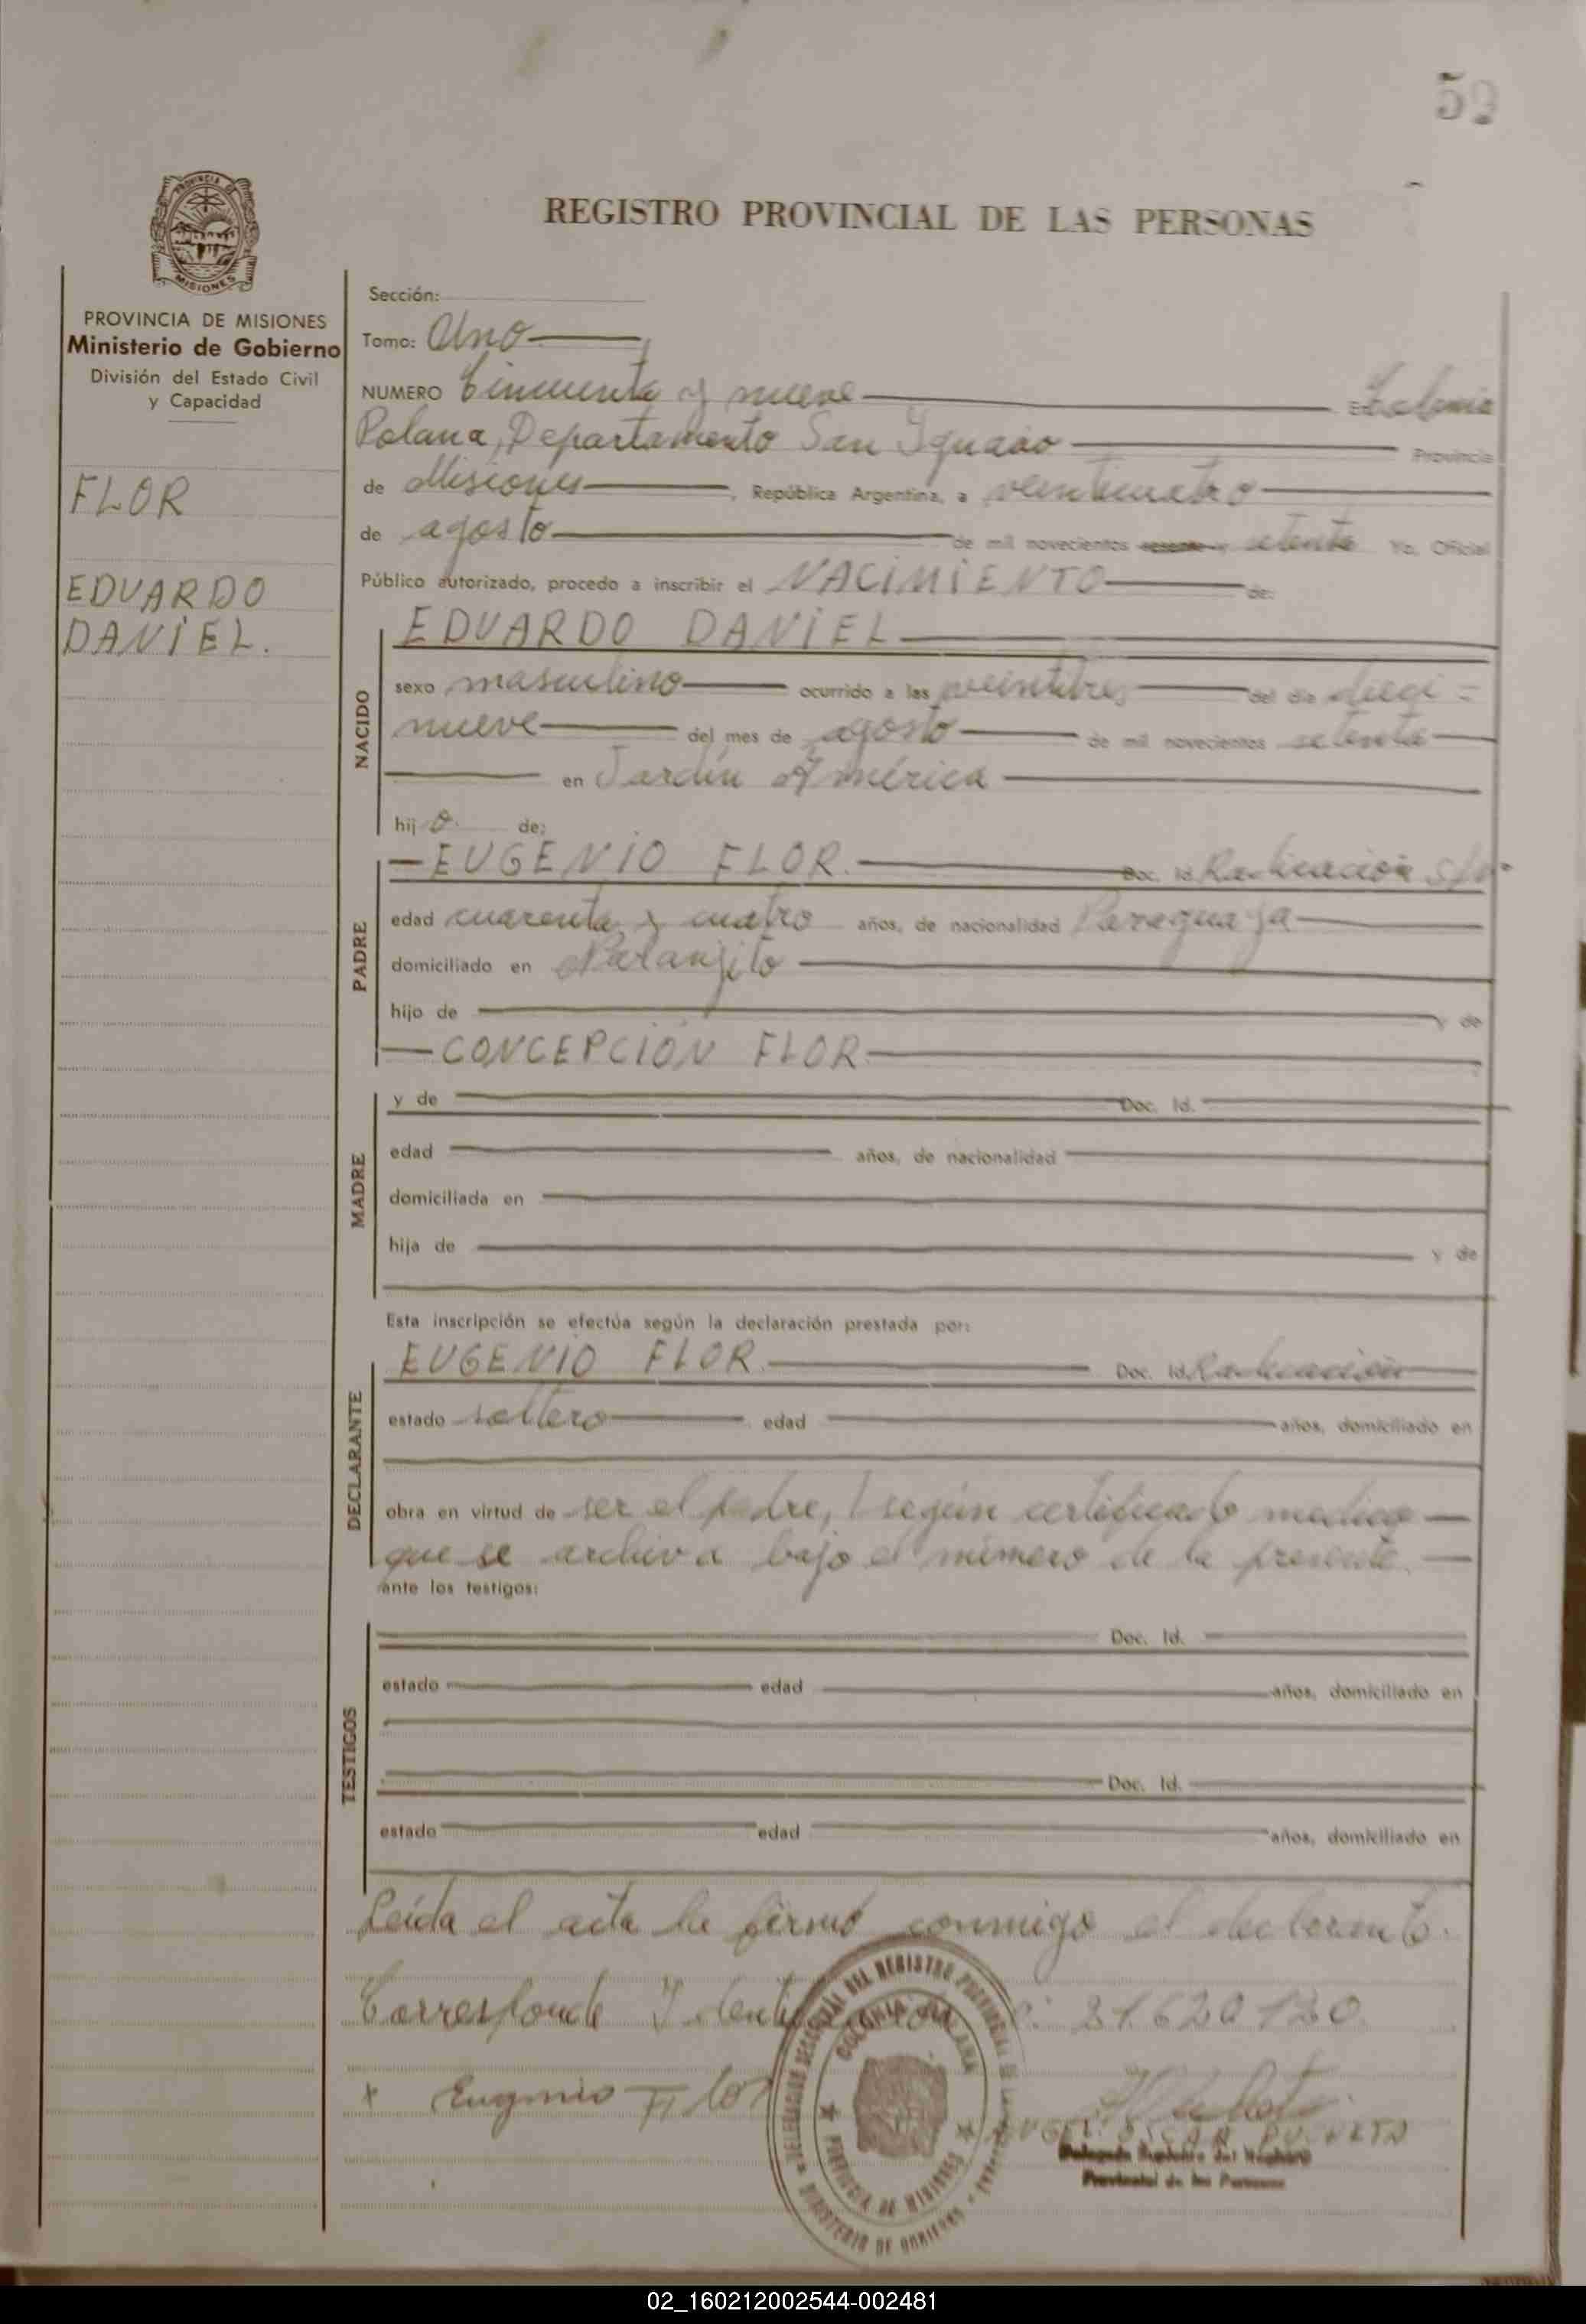 59
REGISTRO PROVINCIAL DE LAS PERSONAS
PROVINCIA DE MISIONES
Ministerio de Gobierno
División del Estado Civil
y Capacidad
FLOR
EDUARDO
DANIEL.
Sección:
Tomo: Uno
NUMERO Cincuenta y nueve En Colonia
Polana, Departamento San Ignacio Provincia
de Misiones, República Argentina, a veinticuatro
de agosto de mil novecientos sesenta y setenta Yo, Oficial
Público autorizado, procedo a inscribir el NACIMIENTO de:
NACIDO
EDUARDO DANIEL
sexo masculino ocurrido a las veintitres del día dieci=
nueve del mes de agosto de mil novecientos setenta
en Jardín América
hijo de:
PADRE
EUGENIO FLOR. Doc. Id. Radicación
edad cuarenta y cuatro años, de nacionalidad Paraguaya
domiciliado en Naranjito
hijo de y de
CONCEPCIÓN FLOR
MADRE
y de Doc. Id.
edad años, de nacionalidad
domiciliada en
hija de y de
Esta inscripción se efectúa según la declaración prestada por:
DECLARANTE
EUGENIO FLOR. Doc. Id. Radicación
estado soltero edad años, domiciliado en
obra en virtud de ser el padre, según certificado medico
que se archiva bajo el número de la presente.
ante los testigos:
TESTIGOS
Doc. Id.
estado edad años, domiciliado en
Doc. Id.
estado edad años, domiciliado en
Leída el acta la firmó conmigo el declarante.
Corresponde 21.620.130.
x Eugenio Flor
DELEGACION SECCIONAL DEL REGISTRO PROVINCIAL DE LAS
COLONIA POLANA
PROVINCIA DE MISIONES
MINISTERIO DE GOBIERNO
OSCAR
Delegado Suplente del Registro
Provincial de las Personas
02_160212002544-002481